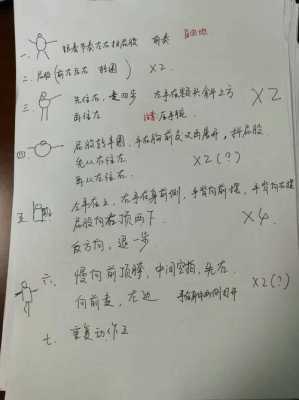 一. 跟着节奏左右抖屁股 前奏
二. 屁股(前左后右 转圈) ×2.
三. 先往左,走四步 左手在额头斜上方 ×2
再往右 压手腕.
四. 屁股转半圈,手在胸前交叉再展开,抖屁股
先从右往左 ×2(?)
再从左往右.
五. 左手在上,右手在身前侧,手背向前摆,手背向右摆
屁股向右顶两下. ×4
反方向,退一步
六. 慢向前顶胯,中间空拍,先右
向前走,左边 手在身体两侧打开 ×2(?)
七. 重复动作五